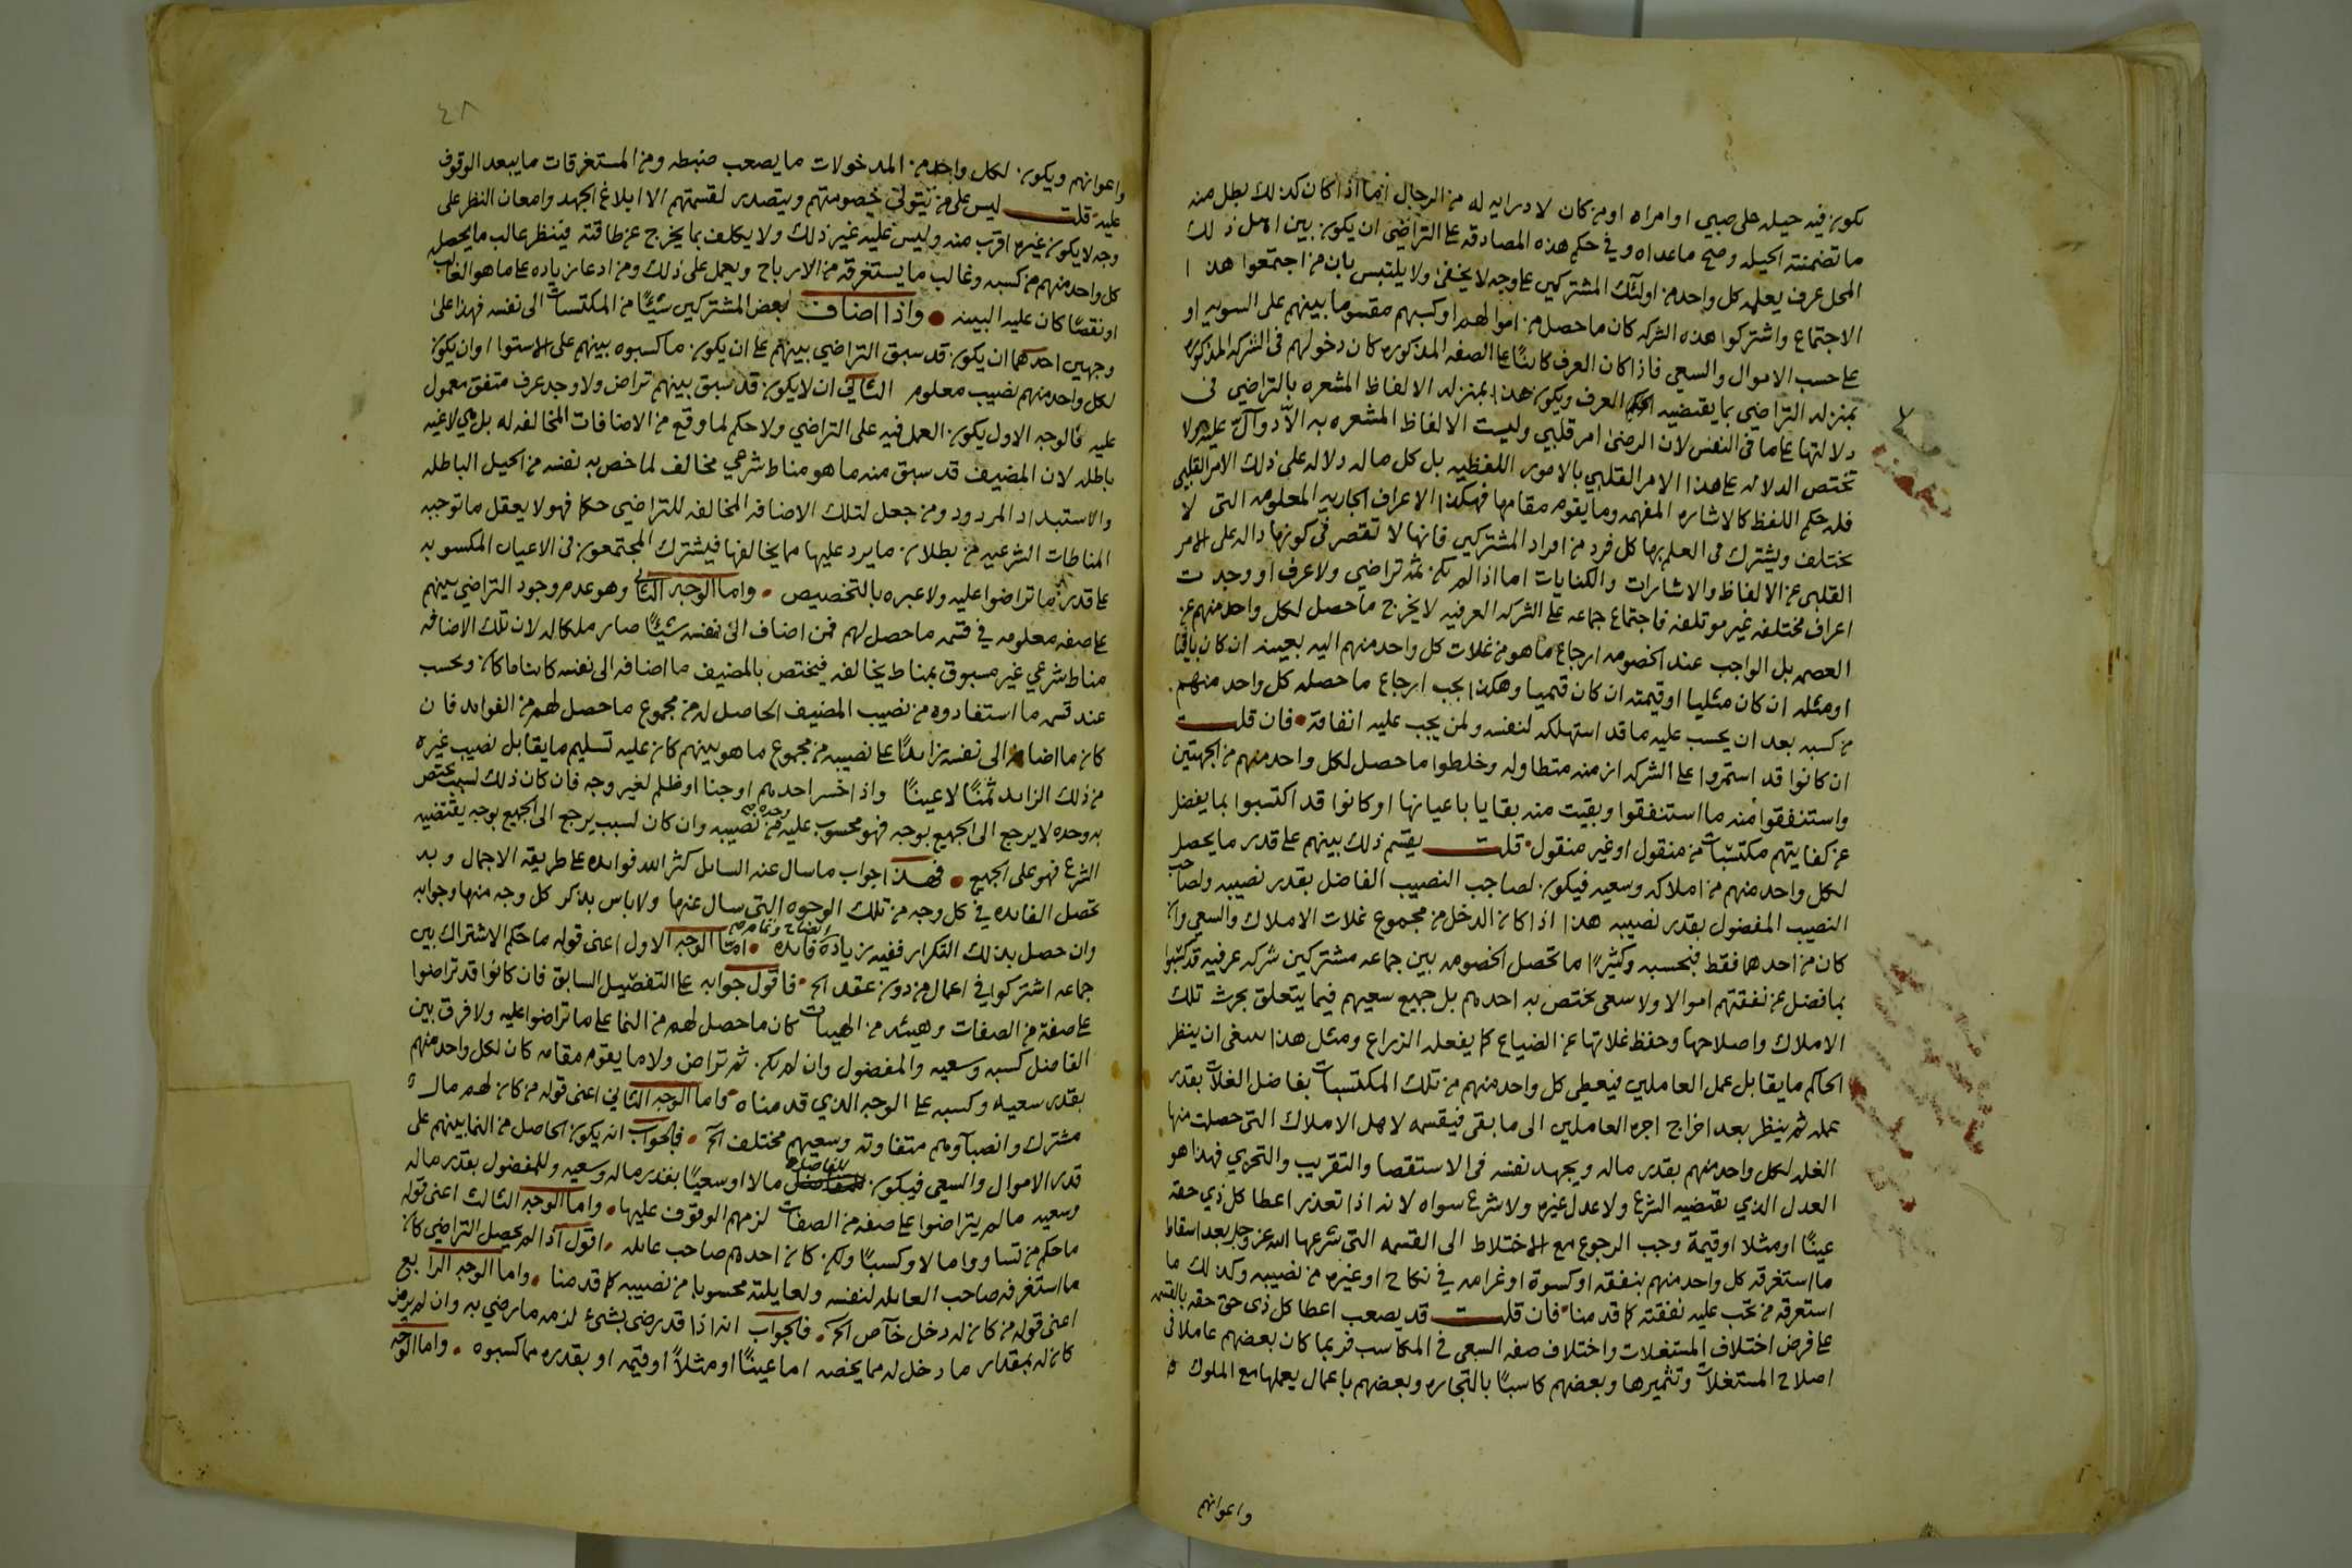 يكون فيه حيله على صبي او امراه او من كان لا درايه له من الرجال اما اذا كان كذلك بطل منه
ما تضمنته الحيله وصح ماعداه وفي حكم هذه المصادقه على التراضي ان يكون بين اهل ذلك
المحل عرف يعلمه كل واحد من اولئك المشتركين على وجه لا يخفى ولا يلتبس بان من اجتمعوا هذا
الاجتماع واشتركوا هذه الشركه كان ما حصل من اموالهم او كسبهم مقسوما بينهم على السويه او
على حسب الاموال والسعي فاذا كان العرف كائنا على الصفه المذكوره كان دخولهم في الشركه المذكوره
بمنزله التراضي بما يقتضيه العرف ويكون هذا بمنزله الالفاظ المشعره بالتراضي في
دلالتها على ما في النفس لان الرضى امر قلبي وليست الالفاظ المشعره به الا دوال عليه ولا
تختص الدلاله على هذا الامر القلبي بالامور اللفظيه بل كل ماله دلاله على ذلك الامر القلبي
فله حكم اللفظ كالاشاره المفهمه وما يقوم مقامها فهكذا الاعراف الجاريه المعلومه التي لا
تختلف ويشترك في العلم بها كل فرد من افراد المشتركين فانها لا تقصر في كونها داله على الامر
القلبي عن الالفاظ والاشارات والكنايات اما اذا لم يكن ثم تراضي ولا عرف او وجدت
اعراف مختلفه غير موتلفه فاجتماع جماعه على الشركه العرفيه لا يخرج ما حصل لكل واحد منهم عن
العصمه بل الواجب عند الخصومه ارجاع ما هو من غلات كل واحد منهم اليه بعينه ان كان باقيا
او مثله ان كان مثليا او قيمته ان كان قيميا وهكذا يجب ارجاع ما حصله كل واحد منهم
من كسبه بعد ان يحسب عليه ما قد استهلكه لنفسه ولمن يجب عليه انفاقه فان قلت
ان كانوا قد استمروا على الشركه ازمنه متطاوله وخلطوا ما حصل لكل واحد منهم من الجهتين
واستنفقوا منه ما استنفقوا وبقيت منه بقايا باعيانها او كانوا قد اكتسبوا بما يفضل
عن كفايتهم مكتسبات من منقول او غير منقول قلت يقسم ذلك بينهم على قدر ما يحصل
لكل واحد منهم من املاكه وسعيه فيكون لصاحب النصيب الفاضل بقدر نصيبه ولصاحب
النصيب المفضول بقدر نصيبه هذا اذا كان الدخل من مجموع غلات الاملاك والسعي وان
كان من احدهما فقط فبحسبه وكثيرا ما تحصل الخصومه بين جماعه مشتركين شركه عرفيه قد كسبوا
بما فضل عن نفقتهم اموالا ولا سعي يختص به احدهم بل جميع سعيهم فيما يتعلق بحرث تلك
الاملاك واصلاحها وحفظ غلاتها عن الضياع كما يفعله الزراع ومثل هذا ينبغي ان ينظر
الحاكم ما يقابل عمل العاملين فيعطي كل واحد منهم من تلك المكتسبات بفاضل الغلات بقدر
عمله ثم ينظر بعد اخراج اجره العاملين الى ما بقي فيقسمه لاهل الاملاك التي حصلت منها
الغله لكل واحد منهم بقدر ماله ويجهد نفسه في الاستقصا والتقريب والتحري فهذا هو
العدل الذي يقتضيه الشرع ولا عدل غيره ولا شرع سواه لانه اذا تعذر اعطا كل ذي حقه
عينا او مثلا او قيمة وجب الرجوع مع الاختلاط الى القسمه التي شرعها الله عز وجل بعد اسقاط
ما استغرقه كل واحد منهم بنفقه او كسوة او غرامه في نكاح او غيره من نصيبه وكذلك ما
استغرقه من تجب عليه نفقته كما قدمنا فان قلت قد يصعب اعطا كل ذي حق حقه بالقسمه
على فرض اختلاف المستغلات واختلاف صفه السعي في المكاسب فربما كان بعضهم عاملا في
اصلاح المستغلات وتثميرها وبعضهم كاسبا بالتجاره وبعضهم باعمال يعملها مع الملوك
واعوانهم
٤٨
واعوانهم ويكون لكل واحد من المدخولات ما يصعب ضبطه ومن المستغرقات ما يبعد الوقوف
عليه قلت ليس على من يتولى خصومتهم ويتصدر لقسمتهم الا ابلاغ الجهد وامعان النظر على
وجه لا يكون غيره اقرب منه وليس عليه غير ذلك ولا يكلف بما يخرج عن طاقته فينظر غالب ما يحصله
كل واحد منهم من كسبه وغالب ما يستغرقه من الارباح ويعمل على ذلك ومن ادعا زياده على ما هو الغالب
او نقصا كان عليه البينه واذا اضاف بعض المشتركين شيئا من المكتسبات الى نفسه فهذا على
وجهين احدهما ان يكون قد سبق التراضي بينهم على ان يكون ما كسبوه بينهم على الاستوا او ان يكون
لكل واحد منهم نصيب معلوم الثاني ان لا يكون قد سبق بينهم تراض ولا وجد عرف متفق معمول
عليه فالوجه الاول يكون العمل فيه على التراضي ولا حكم لما وقع من الاضافات المخالفه له بل هي لاغيه
باطله لان المضيف قد سبق منه ما هو مناط شرعي مخالف لما خص به نفسه من الحيل الباطله
والاستبداد المردود ومن جعل لتلك الاضافه المخالفه للتراضي حكما فهو لا يعقل ما توجبه
المناطات الشرعيه من بطلان ما يرد عليها مما يخالفها فيشترك المجتمعون في الاعيان المكسوبه
على قدر ما تراضوا عليه ولا عبره بالتخصيص واما الوجه الثاني وهو عدم وجود التراضي بينهم
على صفه معلومه في قسمه ما حصل لهم فمن اضاف الى نفسه شيئا صار ملكا له لان تلك الاضافه
مناط شرعي غير مسبوق بمناط يخالفه فيختص بالمضيف ما اضافه الى نفسه كائنا ما كان ويحسب
عند قسمه ما استفادوه من نصيب المضيف الحاصل له من مجموع ما حصل لهم من الفوائد فان
كان ما اضافه الى نفسه زائدا على نصيبه من مجموع ما هو بينهم كان عليه تسليم ما يقابل نصيب غيره
من ذلك الزائد ثمنا لا عينا واذا خسر احدهم او جنا او ظلم لغير وجه فان كان ذلك لسبب يختص
به وحده لا يرجع الى الجميع بوجه فهو محسوب عليه من نصيبه وحده صح وان كان لسبب يرجع الى الجميع بوجه يقتضيه
الشرع فهو على الجميع فهذا جواب ما سال عنه السائل كثر الله فوائده على طريقه الاجمال وبه
تحصل الفائده في كل وجه من تلك الوجوه التي سال عنها ولا باس بذكر كل وجه منها وجوابه
وان حصل بذلك التكرار ففيه زيادة ايضاح وتمام فائده اما الوجه الاول اعني قوله ما حكم الاشتراك بين
جماعه اشتركوا في اعمال من دون عقد الخ فاقول جوابه على التفصيل السابق فان كانوا قد تراضوا
على صفة من الصفات وهيئه من الهيئات كان ما حصل لهم من النما على ما تراضوا عليه ولا فرق بين
الفاضل كسبه وسعيه والمفضول وان لم يكن ثم تراض ولا ما يقوم مقامه كان لكل واحد منهم
بقدر سعيه وكسبه على الوجه الذي قدمناه واما الوجه الثاني اعني قوله من كان لهم مال
مشترك وانصباوهم متفاوته وسعيهم مختلف الخ فالجواب انه يكون الحاصل من النما بينهم على
قدر الاموال والسعي فيكون للفاضل مالا او سعيا بقدر ماله وسعيه وللمفضول بقدر ماله
وسعيه مالم يتراضوا على صفه من الصفات لزمهم الوقوف عليها واما الوجه الثالث اعني قوله
ما حكم من تساووا مالا وكسبا ولكن كان احدهم صاحب عائله اقول اذا لم يحصل التراضي كان
ما استغرقه صاحب العائله لنفسه ولعايلته محسوبا من نصيبه كما قدمنا واما الوجه الرابع
اعني قوله من كان له دخل خاص الخ فالجواب انه اذا قد رضي بشيء لزمه ما رضي به وان لم يرض
كان له بمقدار ما دخل له مما يخصه اما عينا او مثلا او قيمه او بقدره مما كسبوه واما الوجه